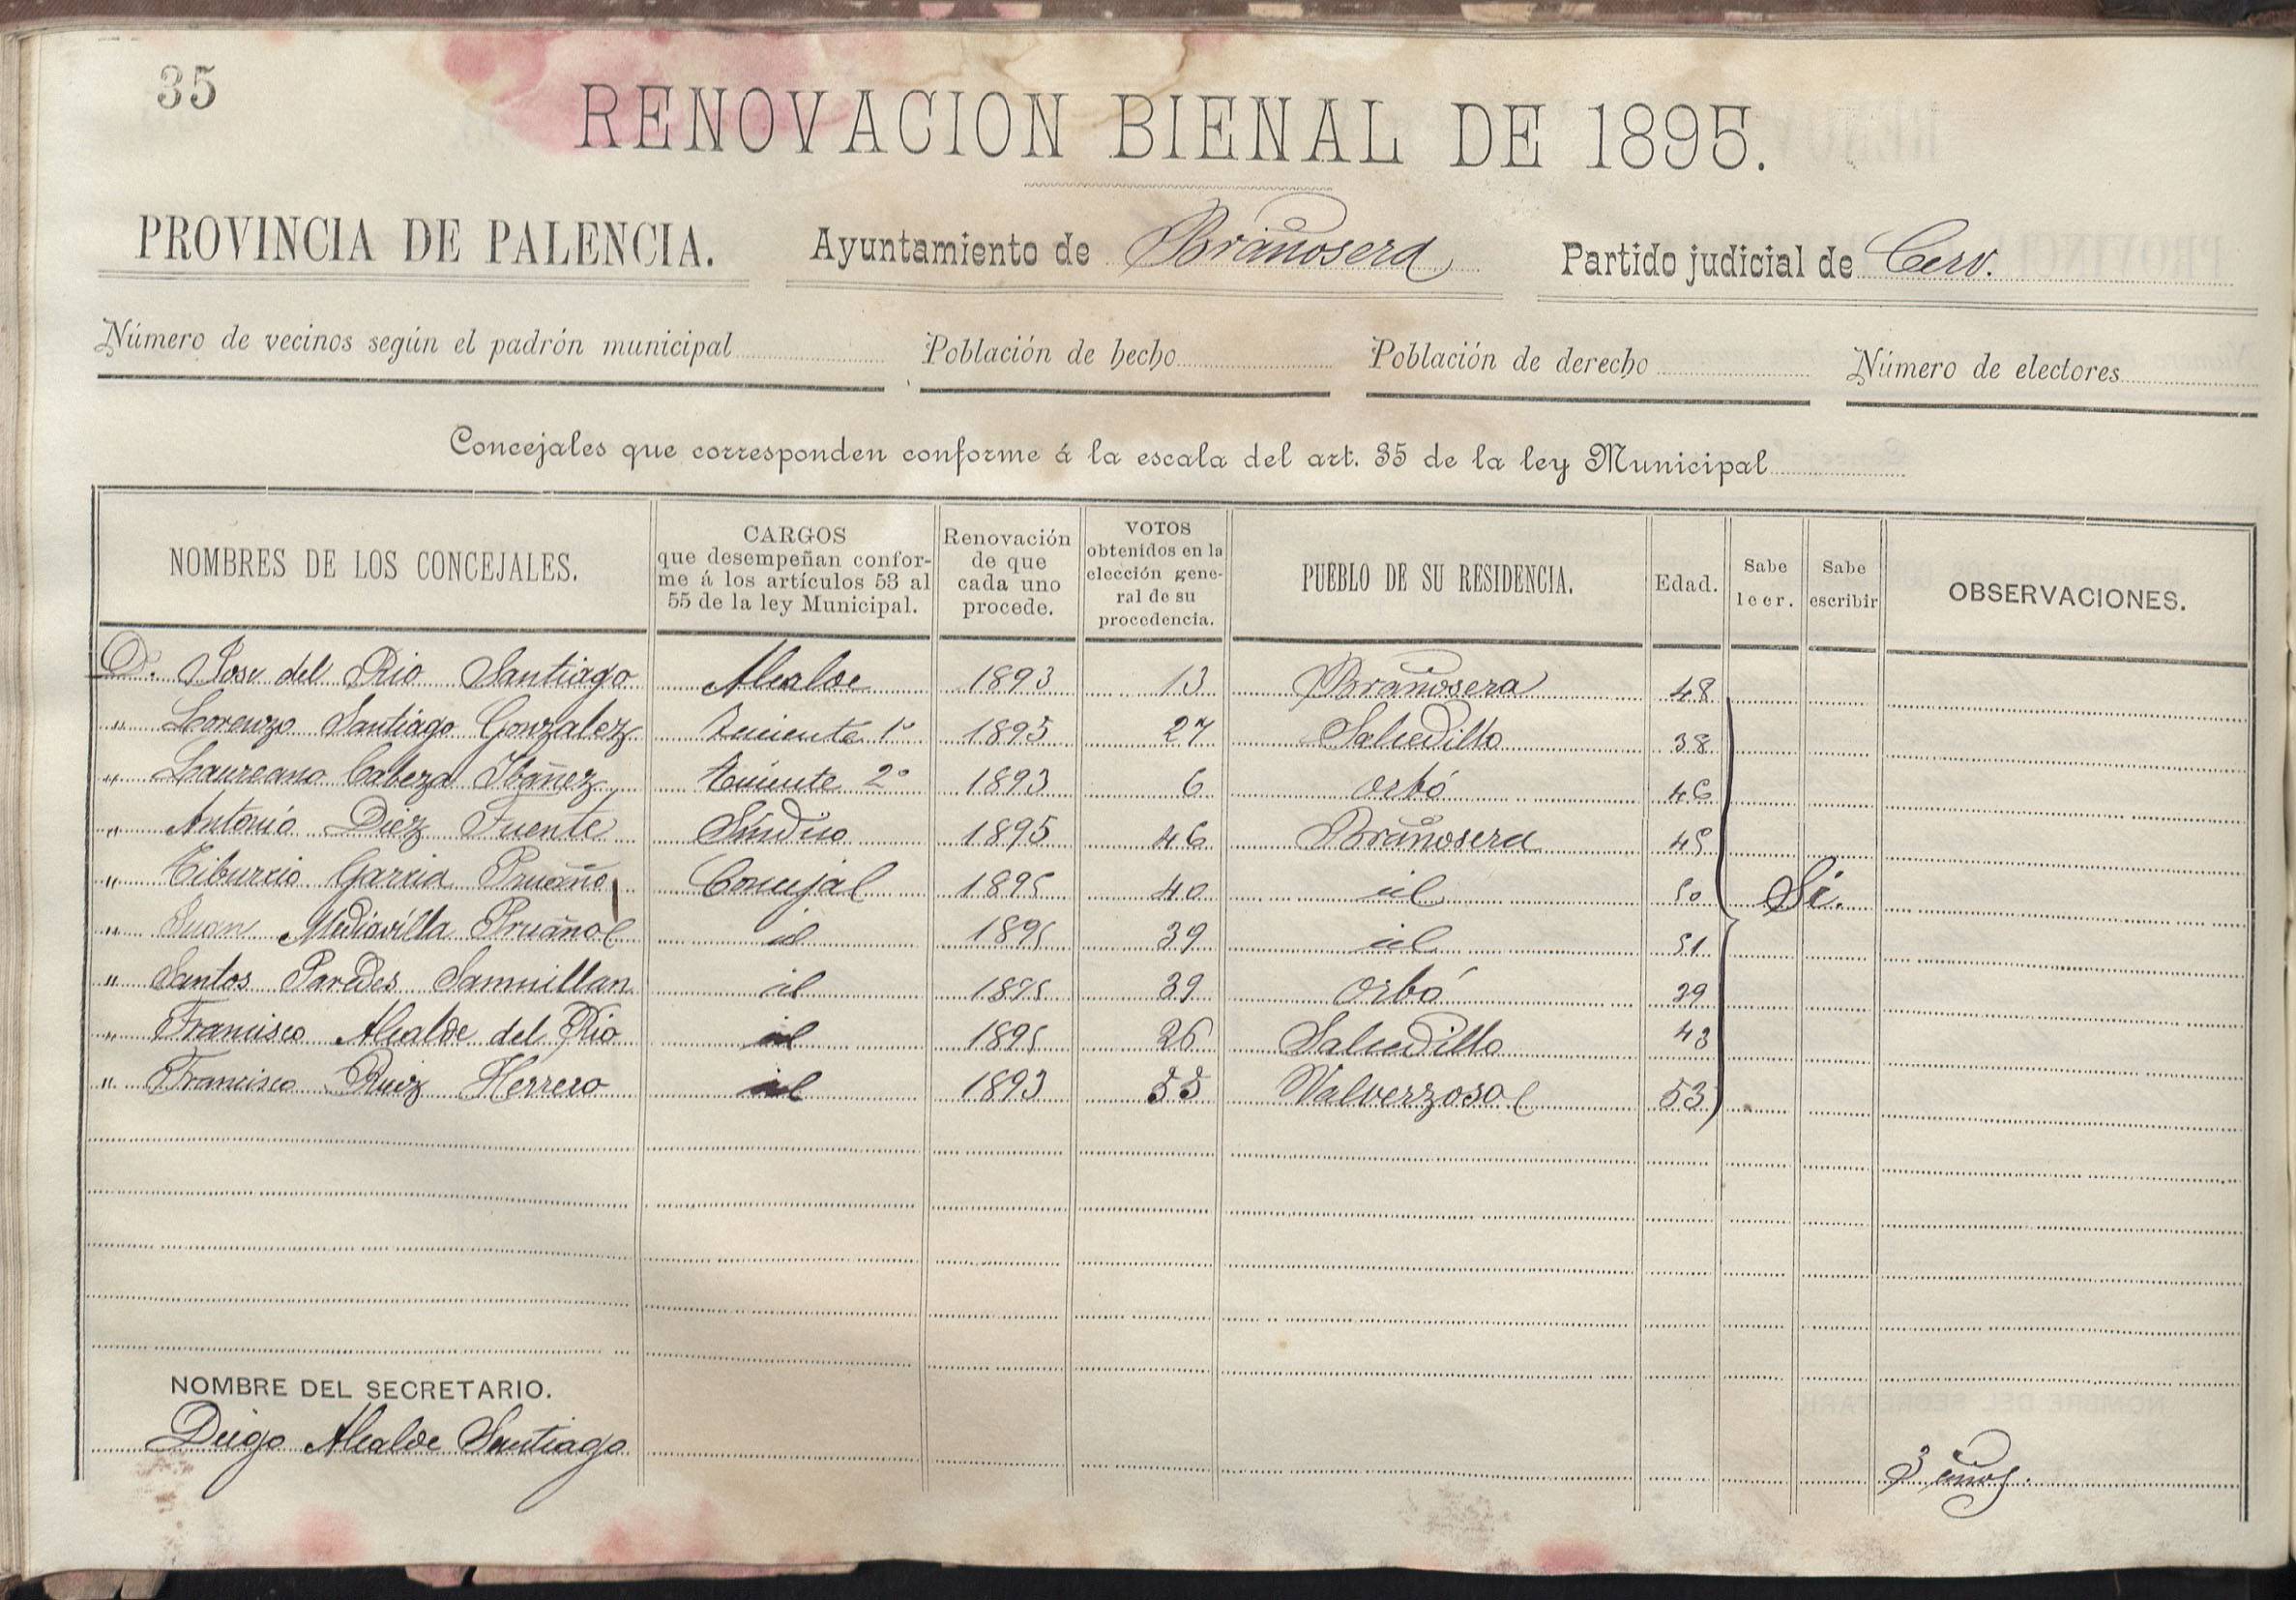 35
RENOVACION BIENAL DE 1895.
PROVINCIA DE PALENCIA. Ayuntamiento de Brañosera Partido judicial de Cerv.
Número de vecinos según el padrón municipal Población de hecho Población de derecho Número de electores
Concejales que corresponden conforme á la escala del art. 35 de la ley Municipal
NOMBRES DE LOS CONCEJALES. CARGOS que desempeñan confor-me á los artículos 53 al 55 de la ley Municipal. Renovación de que cada uno procede. VOTOS obtenidos en la elección gene-ral de su procedencia. PUEBLO DE SU RESIDENCIA. Edad. Sabe leer. Sabe escribir OBSERVACIONES.
D. Jose del Rio Santiago Alcalde 1893 13 Brañosera 48
" Lorenzo Santiago Gonzalez Teniente 1º 1895 27 Salcedillo 38
" Laureano Cabeza Ibañez Teniente 2º 1893 6 Orbó 46
" Antonio Diez Fuente Síndico 1895 46 Brañosera 45
" Tiburcio Garcia Concejal 1895 40 id 50 Si.
" Juan Mediavilla id 1895 39 id 51
" Santos Paredes Sanmillan id 1895 39 Orbó 39
" Francisco Alcalde del Rio id 1895 26 Salcedillo 43
" Francisco Ruiz Herrero id 1893 55 Valverzoso 53
NOMBRE DEL SECRETARIO.
Diego Alcalde Santiago
3 años.